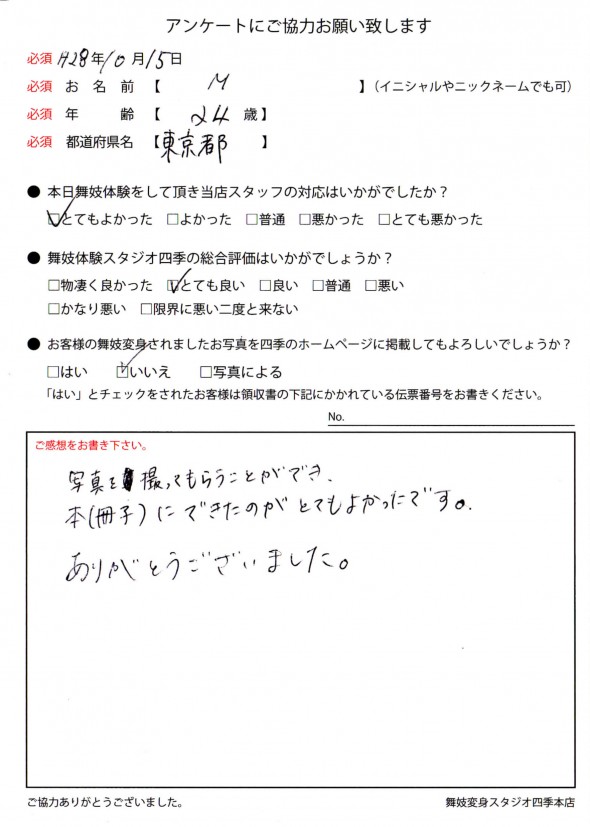 アンケートにご協力お願い致します
必須 H28年10月15日
必須 お名前【 M 】（イニシャルやニックネームでも可）
必須 年齢【 24 歳】
必須 都道府県名【東京都】
● 本日舞妓体験をして頂き当店スタッフの対応はいかがでしたか？
☑とてもよかった □よかった □普通 □悪かった □とても悪かった
● 舞妓体験スタジオ四季の総合評価はいかがでしょうか？
□物凄く良かった ☑とても良い □良い □普通 □悪い
□かなり悪い □限界に悪い二度と来ない
● お客様の舞妓変身されましたお写真を四季のホームページに掲載してもよろしいでしょうか？
□はい ☑いいえ □写真による
「はい」とチェックをされたお客様は領収書の下記にかかれている伝票番号をお書きください。
No.
ご感想をお書き下さい。
写真を撮ってもらうことができ、
本(冊子)にできたのがとてもよかったです。
ありがとうございました。
ご協力ありがとうございました。 舞妓変身スタジオ四季本店